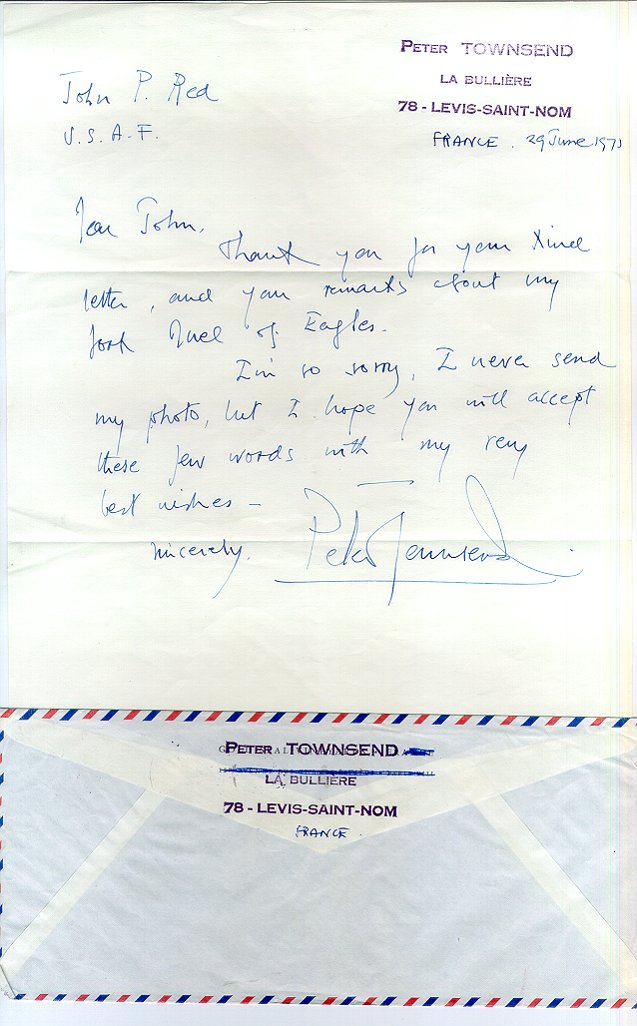 PETER TOWNSEND
LA BULLIÈRE
78 - LEVIS-SAINT-NOM
FRANCE. 29 June 1971
John P. Red
U.S.A.F.
Dear John,
Thank you for your kind
letter, and your remarks about my
book Duel of Eagles.
I'm so sorry, I never send
my photo, but I hope you will accept
these few words with my very
best wishes –
Sincerely,
Peter Townsend
PETER TOWNSEND
LA BULLIÈRE
78 - LEVIS-SAINT-NOM
FRANCE.